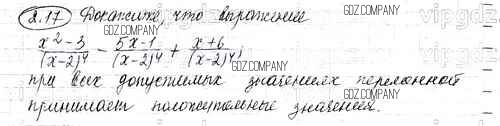 2.17 Докажите, что выражение
GDZ.COMPANY
x² - 3 / (x-2)⁴ - 5x-1 / (x-2)⁴ + x+6 / (x-2)⁴,
при всех допустимых значениях переменной
принимает положительные значения.
GDZ.COMPANY